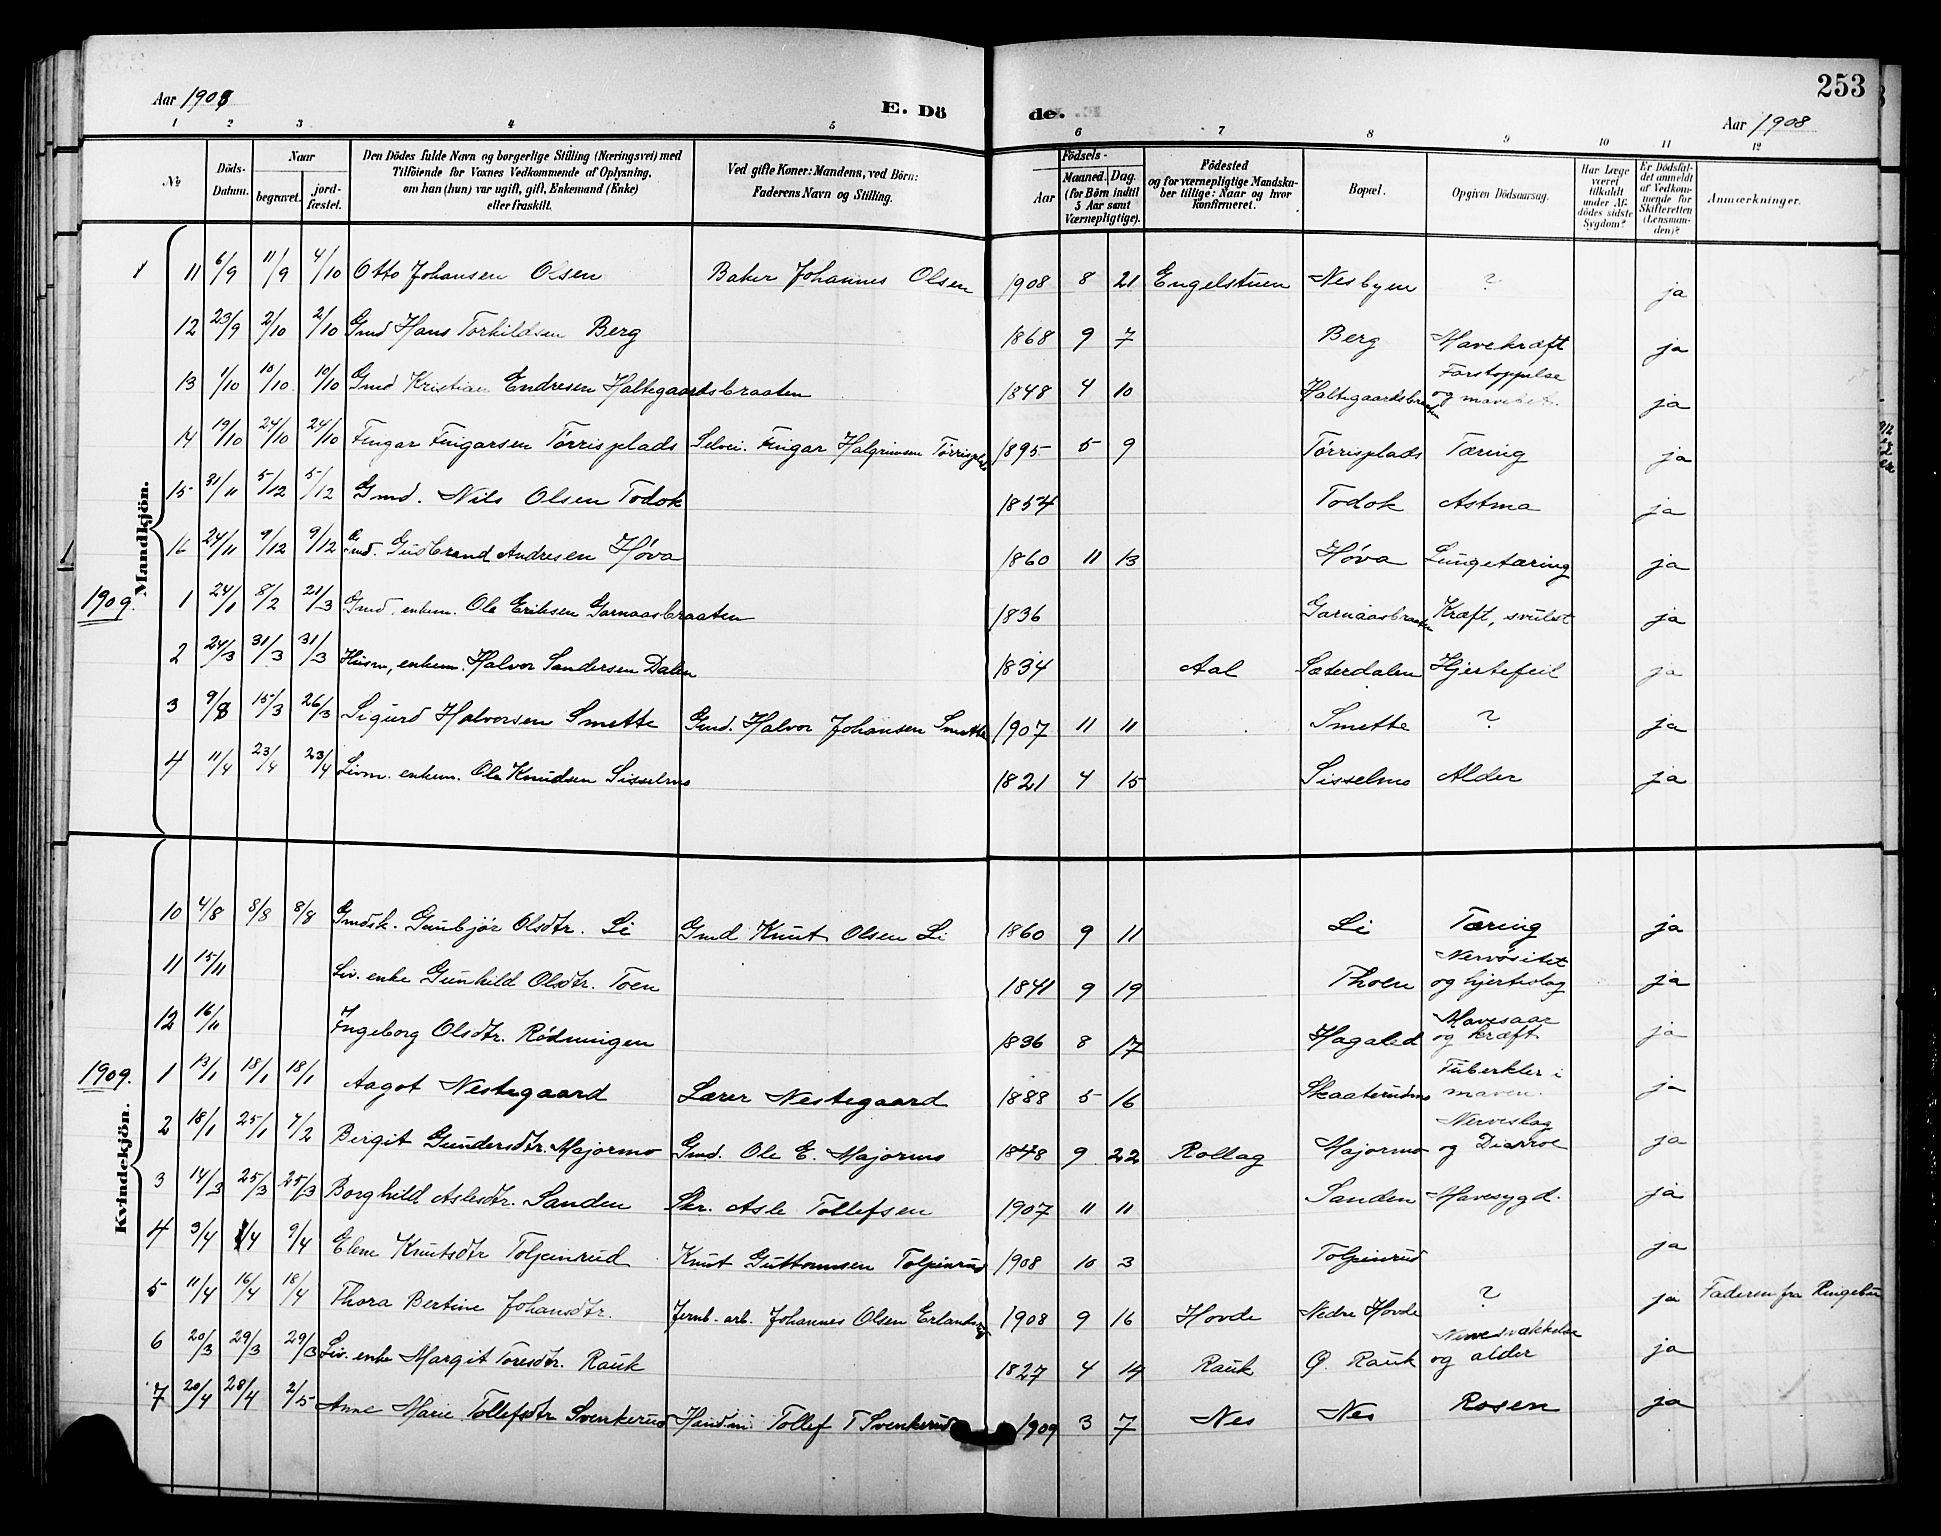 253
Aar 1908 E. Dö de. Aar 1908
1 2 3 4 5 6 7 8 9 10 11 12
No Döds-Datum. Naar begravet. jord-fæstet. Den Dödes fulde Navn og borgerlige Stilling (Næringsvei) med Tilföiende for Voxnes Vedkommende af Oplysning, om han (hun) var ugift, gift, Enkemand (Enke) eller fraskilt. Ved gifte Koner: Mandens, ved Börn: Faderens Navn og Stilling. Födsels- Aar Maaned. Dag. (for Börn indtil 5 Aar samt Værnepligtige). Födested og for værnepligtige Mandskaber tillige: Naar og hvor konfirmeret. Bopæl. Opgiven Dödsaarsag. Har Læge været tilkaldt under Afdödes sidste Sygdom? Er Dödsfaldet anmeldt af Vedkommende for Skifteretten (Lensmanden)? Anmærkninger.
Mandkjön.
11 6/9 11/9 4/10 Otto Johansen Olsen Baker Johannes Olsen 1908 8 21 Engelstuen Nesbyen ? ja
12 23/9 2/10 2/10 Gmd Hans Torkildsen Berg 1868 9 7 Berg Mavekræft ja
13 1/10 10/10 10/10 Gmd Kristian Endresen Haltegaardsbraaten 1848 4 10 Haltegaardsbraaten Forstoppelse og ja
14 19/10 24/10 24/10 Fingar Fingarsen Tørrisplads Selvei. Fingar Halgrimsen Tørrisplads 1895 5 9 Tørrisplads Tæring ja
15 31/11 5/12 5/12 Gmd. Nils Olsen Todok 1854 Todok Astma ja
16 24/11 9/12 9/12 Gmd. Gudbrand Andresen Høva 1860 11 13 Høva Lungetæring ja
1909. 1 24/1 8/2 21/3 Gmd. enkem. Ole Eriksen Garnaasbraaten 1836 Garnaasbraaten Kræft, svulst ja
2 24/3 31/3 31/3 Husm, enkem. Halvor Sandersen Dalen 1834 Aal Sæterdalen Hjertefeil ja
3 9/3 15/3 26/3 Sigurd Halvorsen Smette Gmd. Halvor Johansen Smette 1907 11 11 Smette ? ja
4 11/4 23/4 23/4 Livm. enkem. Ole Knudsen Sisselmo 1821 4 15 Sisselmo Alder ja
Kvindekjön.
10 4/8 8/8 8/8 Gmdsk. Gunbjør Olsdtr. Li Gmd Knut Olsen Li 1860 9 11 Li Tæring ja
11 15/11 Liv. enke Gunhild Olsdtr. Toen 1841 9 19 Thoen Nervøsitet og hjerteslag ja
12 16/11 Ingeborg Olsdtr. Rødningen 1836 8 17 Hagaled Mavesaar og kræft. ja
1909. 1 13/1 18/1 18/1 Aagot Nestegaard Lærer Nestegaard 1888 5 16 Skaaterudmo Tuberkler i maven. ja
2 18/1 25/1 7/2 Birgit Gundersdtr. Majormo Gmd. Ole E. Majormo 1848 9 22 Rollag Majormo Nerveslag og Diarroe ja
3 14/3 25/3 25/3 Borghild Aslesdtr. Sanden Skr. Asle Tollefsen 1907 11 11 Sanden Mavesygd. ja
4 3/4 9/4 9/4 Elene Knutsdtr Tolpinrud Knut Guttormsen Tolpinrud 1908 10 3 Tolpinrud ja
5 11/4 16/4 18/4 Thora Bertine Johansdtr. Jernb. arb. Johannes Olsen 1908 9 16 Hovde Nedre Hovde ? ja Faderen fra Ringebu
6 20/3 29/3 29/3 Liv. enke Margit Toresdtr. Rauk 1827 4 14 Rauk Ø. Rauk Nervesvækkelse og alder ja
7 20/4 28/4 2/5 Anne Marie Tollefsdtr Svenkerud Handm. Tollef T Svenkerud 1909 3 7 Nes Nes Rosen ja